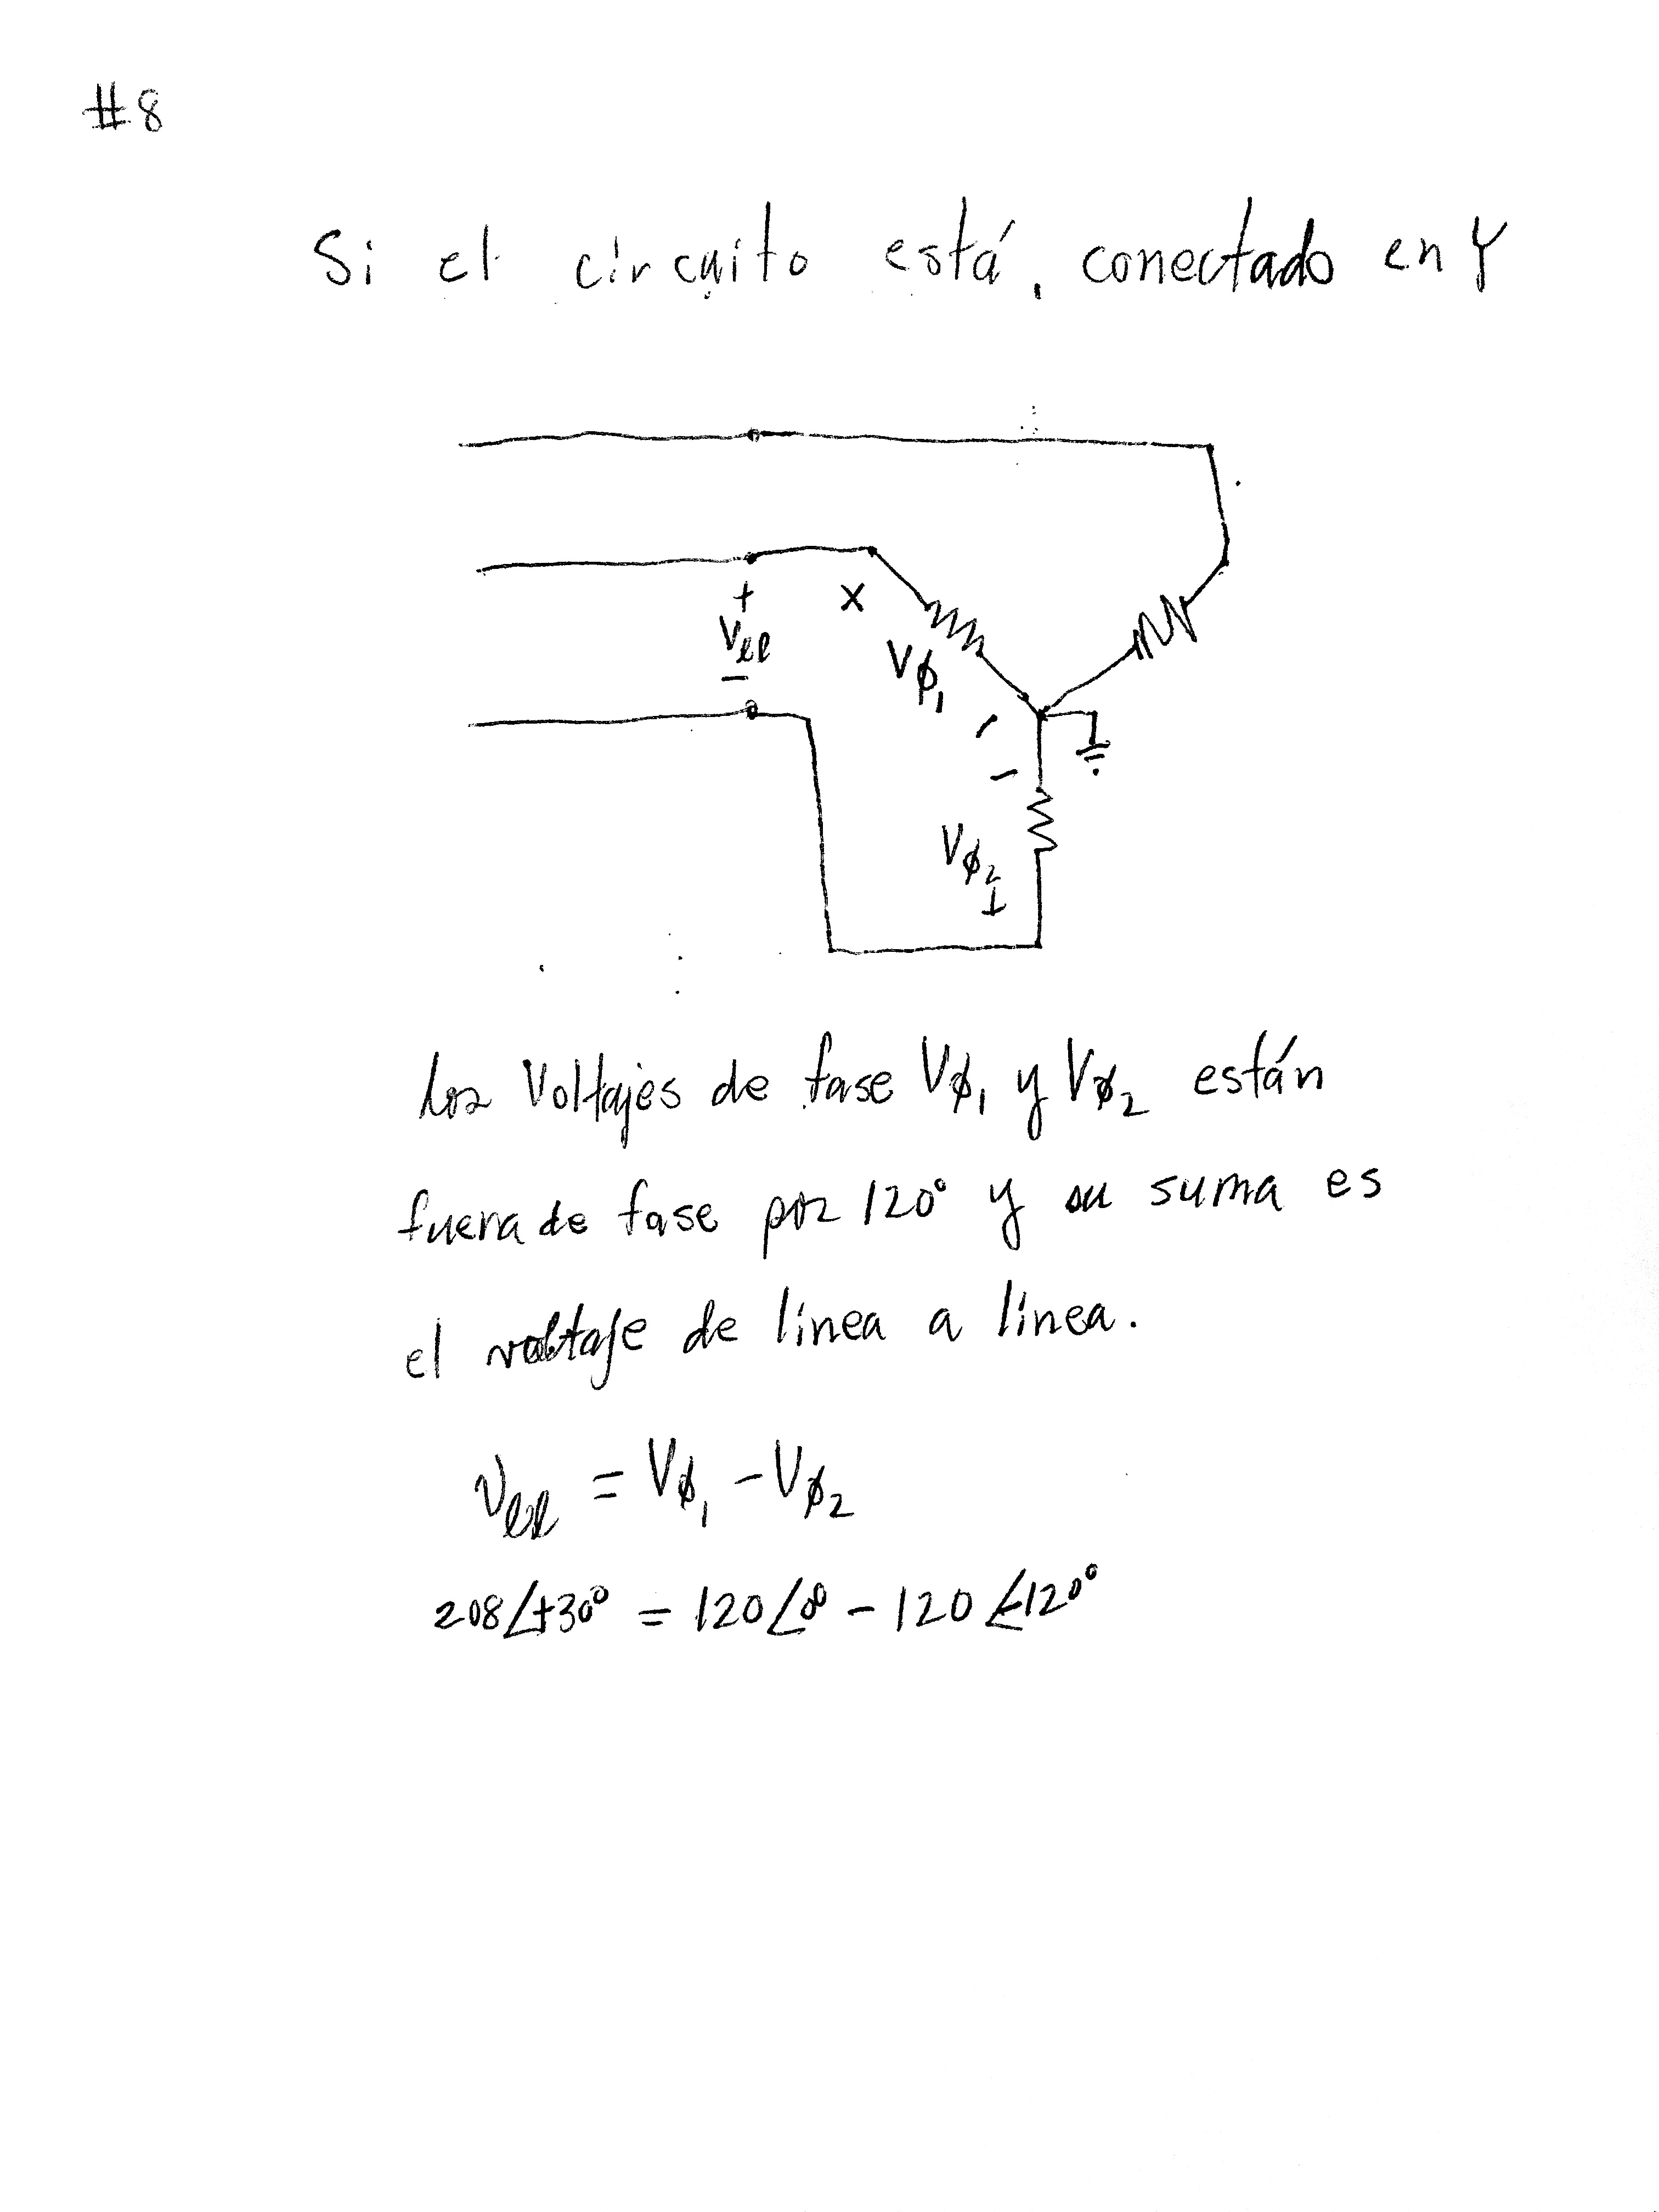 #8
Si el circuito está, conectado en Y
+
Vℓℓ
−
x
Vø₁
−
−
Vø₂
+
Los Voltajes de fase Vø₁ y Vø₂ están
fuera de fase por 120° y su suma es
el voltaje de línea a línea.
Vℓℓ = Vø₁ − Vø₂
208∠+30° = 120∠0° − 120∠-120°